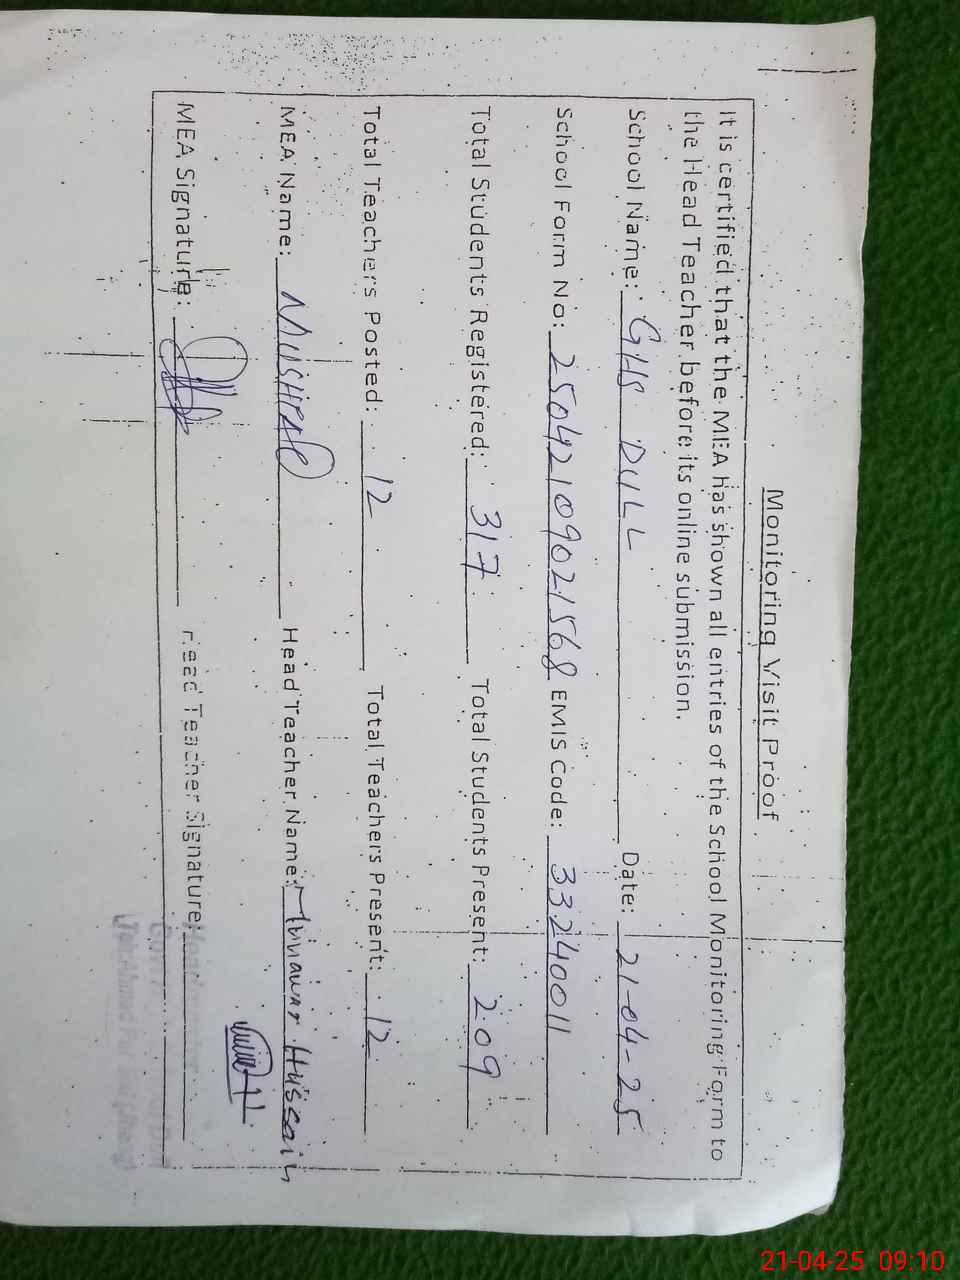 Monitoring Visit Proof
It is certified that the MEA has shown all entries of the School Monitoring Form to
the Head Teacher before its online submission.
School Name: GHS DULL Date: 21-04-25
School Form No: 25042109021568 EMIS Code: 33240011
Total Students Registered: 317 Total Students Present: 209
Total Teachers Posted: 12 Total Teachers Present: 12
MEA Name: MUSHTAQ Head Teacher Name: Munawar Hussain
MEA Signature: Head Teacher Signature:
Headmaster
21-04-25 09:10